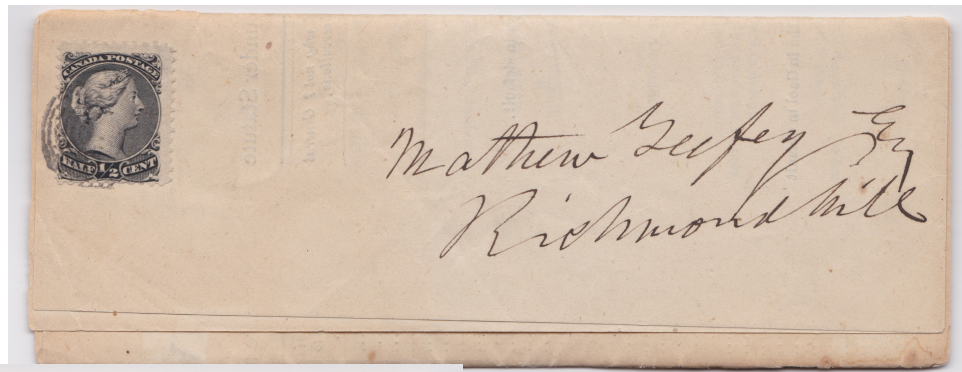 CANADA POSTAGE
HALF ½ CENT
Mathew Teefey Esq
Richmondhill